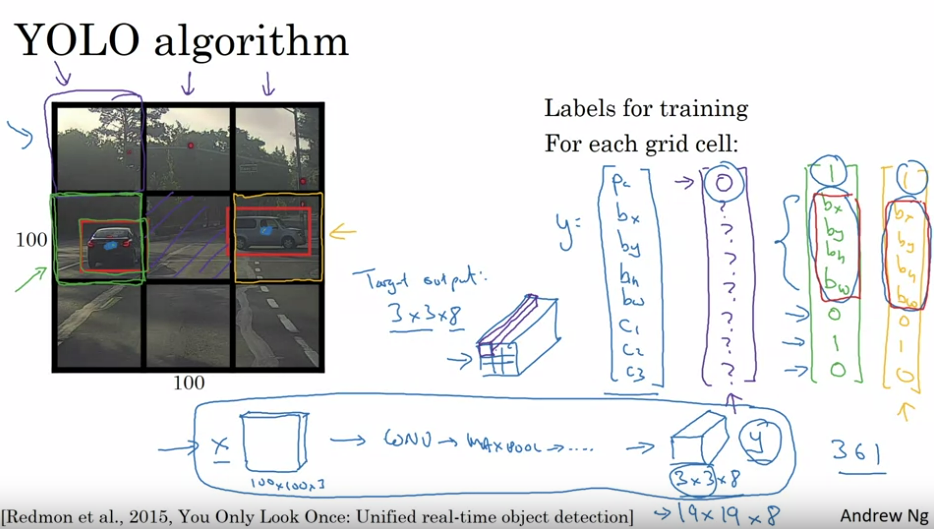 YOLO algorithm
100
100
Labels for training
For each grid cell:
y =
Pc
bx
by
bh
bw
C1
C2
C3
0
?
?
?
?
?
?
?
1
bx
by
bh
bw
0
1
0
1
bx
by
bh
bw
0
1
0
Target output:
3×3×8
x
100×100×3
→ CONV → MAXPOOL → ....
→
3×3×8
y
→ 19×19×8
361
[Redmon et al., 2015, You Only Look Once: Unified real-time object detection]
Andrew Ng